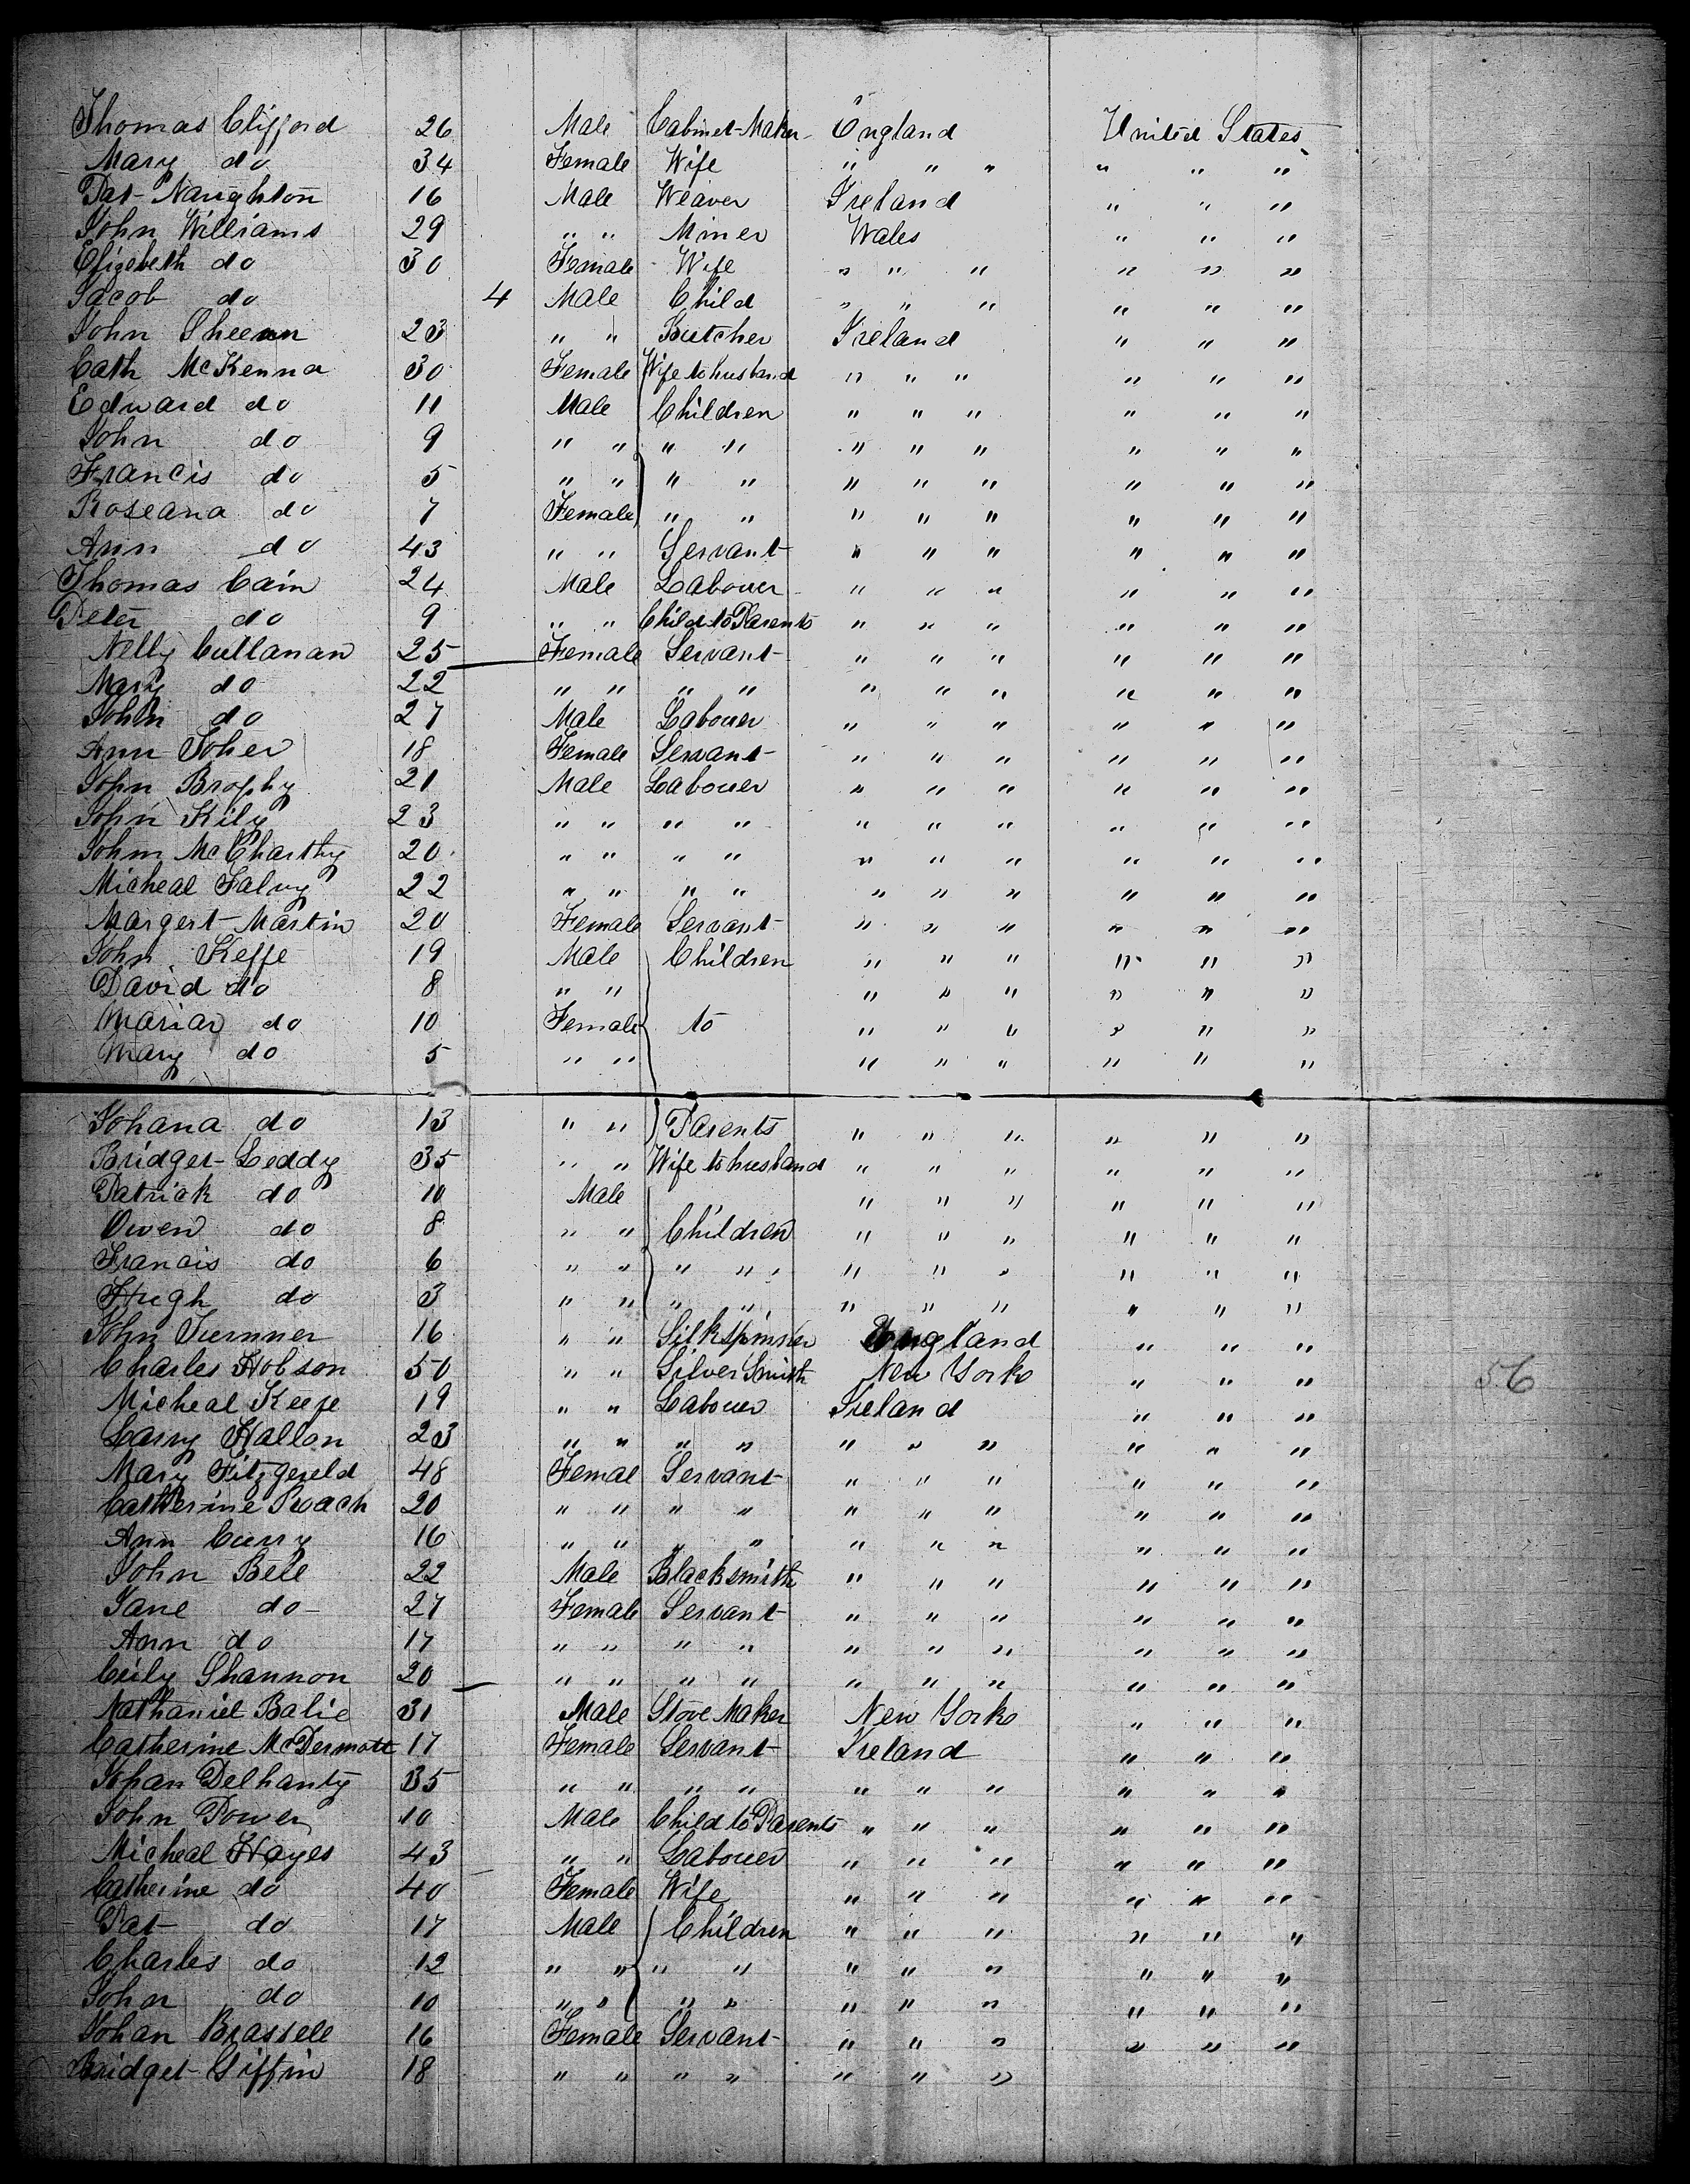 Thomas Clifford 26 Male Cabinet-Maker England United States
Mary do 34 Female Wife " " " " " "
Pat Naughton 16 Male Weaver Ireland " " "
John Williams 29 " " Miner Wales " " "
Elizebeth do 30 Female Wife " " " " " "
Jacob do 4 Male Child " " " " " "
John Sheean 23 " " Butcher Ireland " " "
Cath McKenna 30 Female Wife to husband " " " " " "
Edward do 11 Male Children " " " " " "
John do 9 " " " " " " " " " "
Francis do 5 " " " " " " " " " "
Roseana do 7 Female " " " " " " " "
Ann do 43 " " Servant " " " " " "
Thomas Cain 24 Male Labouer " " " " " "
Peter do 9 " " Child to Parents " " " " " "
Nelly Cullanan 25 Female Servant " " " " " "
Mary do 22 " " " " " " " " " "
John do 27 Male Labouer " " " " " "
Ann Toher 18 Female Servant " " " " " "
John Brophy 21 Male Labouer " " " " " "
John Kily 23 " " " " " " " " " "
John McCharthy 20 " " " " " " " " " "
Micheal Falvy 22 " " " " " " " " " "
Margert Martin 20 Female Servant " " " " " "
John Keffe 19 Male Children " " " " " "
David do 8 " " " " " " " "
Mariar do 10 Female to " " " " " "
Mary do 5 " " " " " " " "
Johana do 13 " " Parents " " " " " "
Bridget Leddy 35 " " Wife to husband " " " " " "
Patrick do 10 Male " " " " " "
Owen do 8 " " Children " " " " " "
Francis do 6 " " " " " " " " " "
Hugh do 3 " " " " " " " " " "
John Turnner 16 " " Silk Spinster England " " "
Charles Hobson 50 " " Silver Smith New York " " " 56
Micheal Keefe 19 " " Labouer Ireland " " "
Larry Hallon 23 " " " " " " " " " "
Mary Fitzgereld 48 Femal Servant " " " " " "
Catherine 20 " " " " " " " " " "
Ann Curry 16 " " " " " " " " " "
John Bell 22 Male Blacksmith " " " " " "
Jane do 27 Female Servant " " " " " "
Ann do 17 " " " " " " " " " "
Cicily Shannon 20 " " " " " " " " " "
Nathaniel Balie 31 Male Stove Maker New York " " "
Catherine McDermott 17 Female Servant Ireland " " "
Johan Delhanty 35 " " " " " " " " " "
John Power 10 Male Child to Parents " " " " " "
Micheal Hayes 43 " " Labouer " " " " " "
Catherine do 40 Female Wife " " " " " "
Pat do 17 Male Children " " " " " "
Charles do 12 " " " " " " " " " "
John do 10 " " " " " " " " " "
Johan Brassell 16 Female Servant " " " " " "
Bridget Giffin 18 " " " " " " "